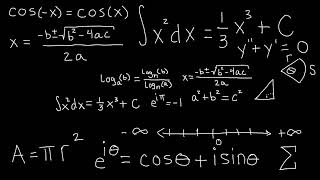 cos(-x) = cos(x)
x = -b±√b²-4ac / 2a
∫x²dx = 1/3 x³ + C
y'' + y' = 0
r
θ
S
Log_a(b) = Log_n(b) / Log_n(a)
x = -b±√b²-4ac / 2a
∫x²dx = 1/3 x³ + C
e^iπ = -1
a² + b² = c²
-∞
0
+∞
A = πr²
e^iθ = cosθ + isinθ
Σ